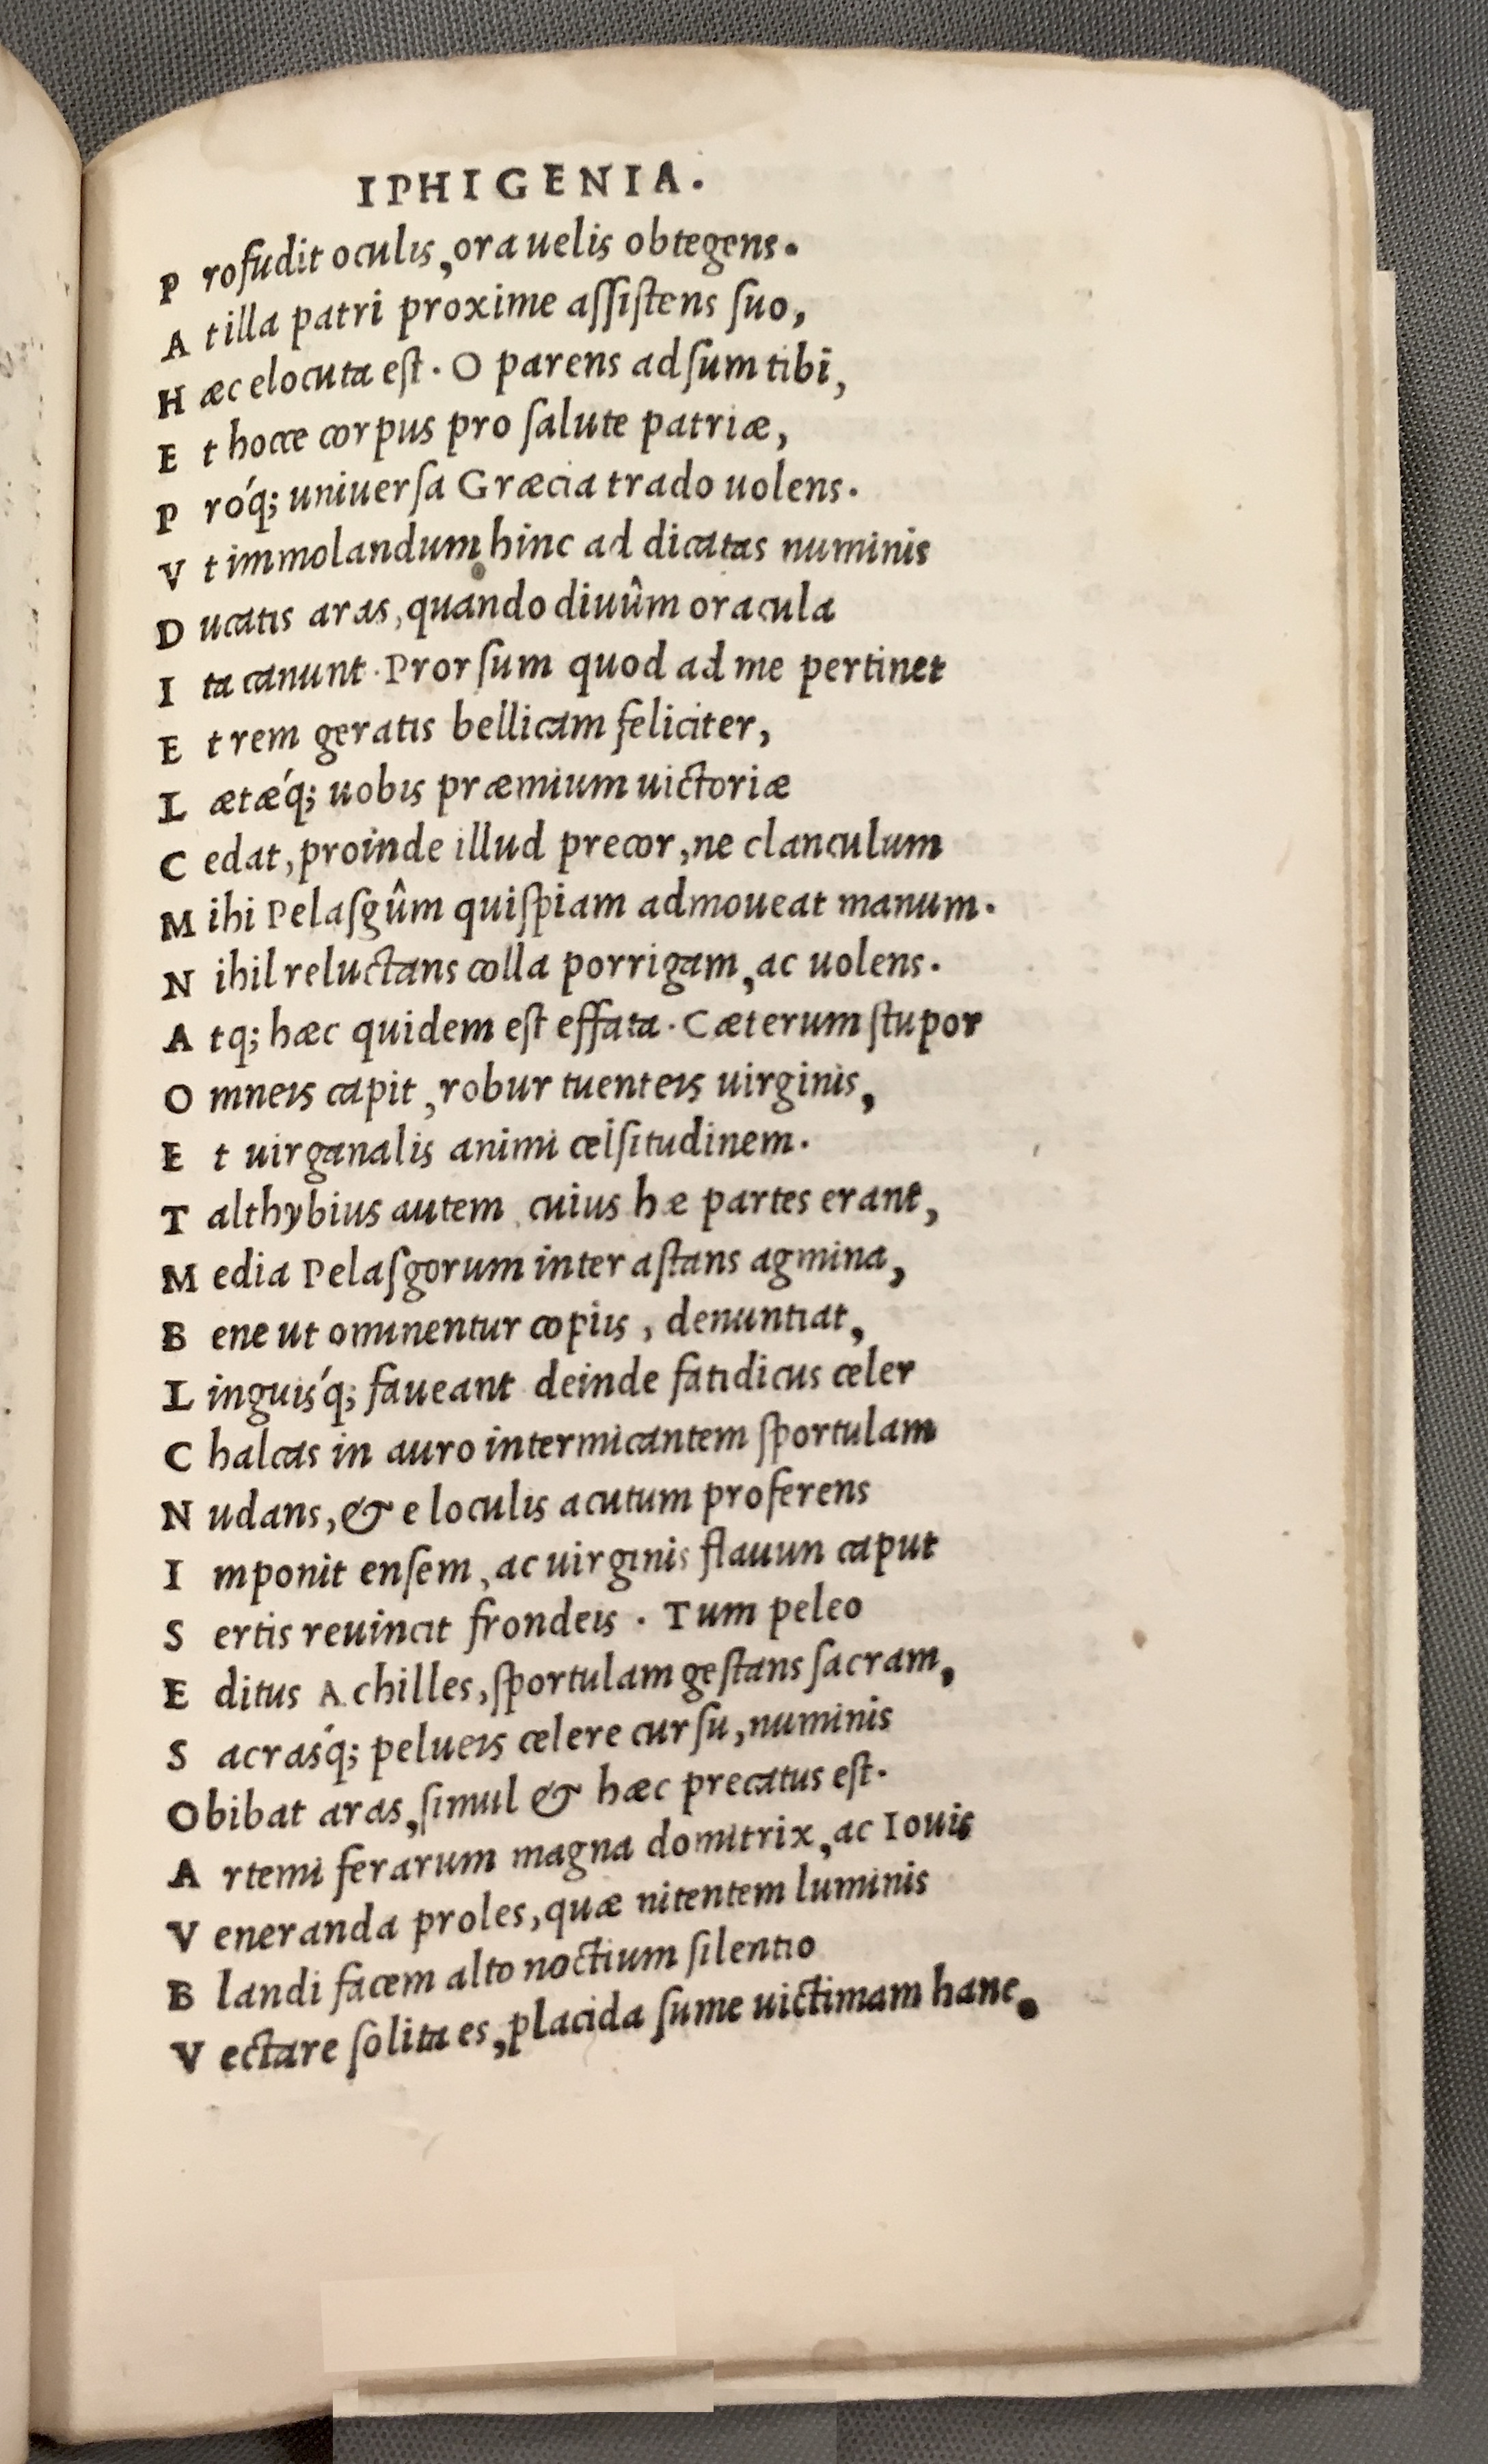 IPHIGENIA.
P rofudit oculis, ora uelis obtegens.
A t illa patri proxime aſſiſtens ſuo,
H æc elocuta eſt. O parens adſum tibi,
E t hocce corpus pro ſalute patriæ,
P róq; uniuerſa Græcia trado uolens.
V t immolandum hinc ad dicatas numinis
D ucatis aras, quando diuûm oracula
I ta canunt. Prorſum quod ad me pertinet
E t rem geratis bellicam feliciter,
L ætǽq; uobis præmium uictoriæ
C edat, proinde illud precor, ne clanculum
M ihi Pelaſgûm quiſpiam admoueat manum.
N ihil reluctans colla porrigam, ac uolens.
A tq; hæc quidem eſt effata. Cæterum ſtupor
O mneis capit, robur tuenteis uirginis,
E t uirganalis animi celſitudinem.
T althybius autem cuius hæ partes erant,
M edia Pelaſgorum inter aſtans agmina,
B ene ut ominentur copiis, denuntiat,
L inguiśq; faueant deinde fatidicus celer
C halcas in auro intermicantem ſportulam
N udans, & e loculis acutum proferens
I mponit enſem, ac uirginis flauun caput
S ertis reuincit frondeis. Tum peleo
E ditus Achilles, ſportulam geſtans ſacram,
S acraśq; pelueis celere curſu, numinis
Obibat aras, ſimul & hæc precatus eſt.
A rtemi ferarum magna domitrix, ac Iouis
V eneranda proles, quæ nitentem luminis
B landi facem alto noctium ſilentio
V ectare ſolita es, placida ſume uictimam hanc.